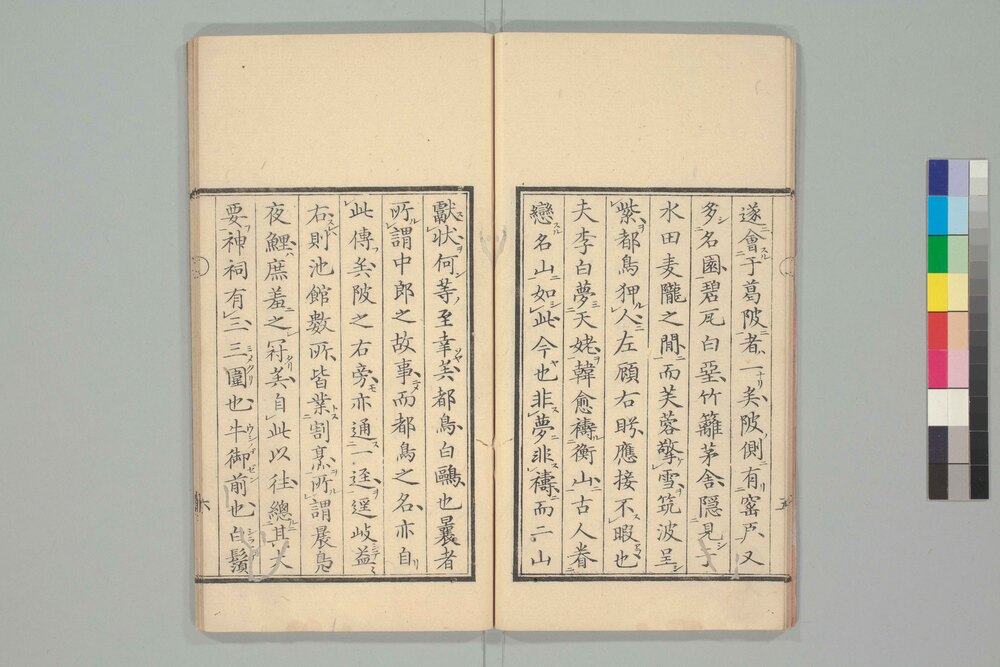 遂會于葛陂者一矣陂側有窑戸又
多名園碧瓦白堊竹籬茅舍隱見于
水田麦隴之間而芙蓉擎雪筑波呈
紫都鳥狎人左顧右眄應接不暇也
夫李白夢天姥韓愈禱衡山古人眷
戀名山如此今也非夢非禱而二山
獻状何等至幸矣都鳥白鷗也曩者
所謂中郎之故事而都鳥之名亦自
此傳矣陂之右旁亦通一逕逕岐益
右則池館數所皆業割烹所謂晨鳬
夜鯉庶羞之冠矣自此以往總其大
要神祠有三三圍也牛御前也白鬚